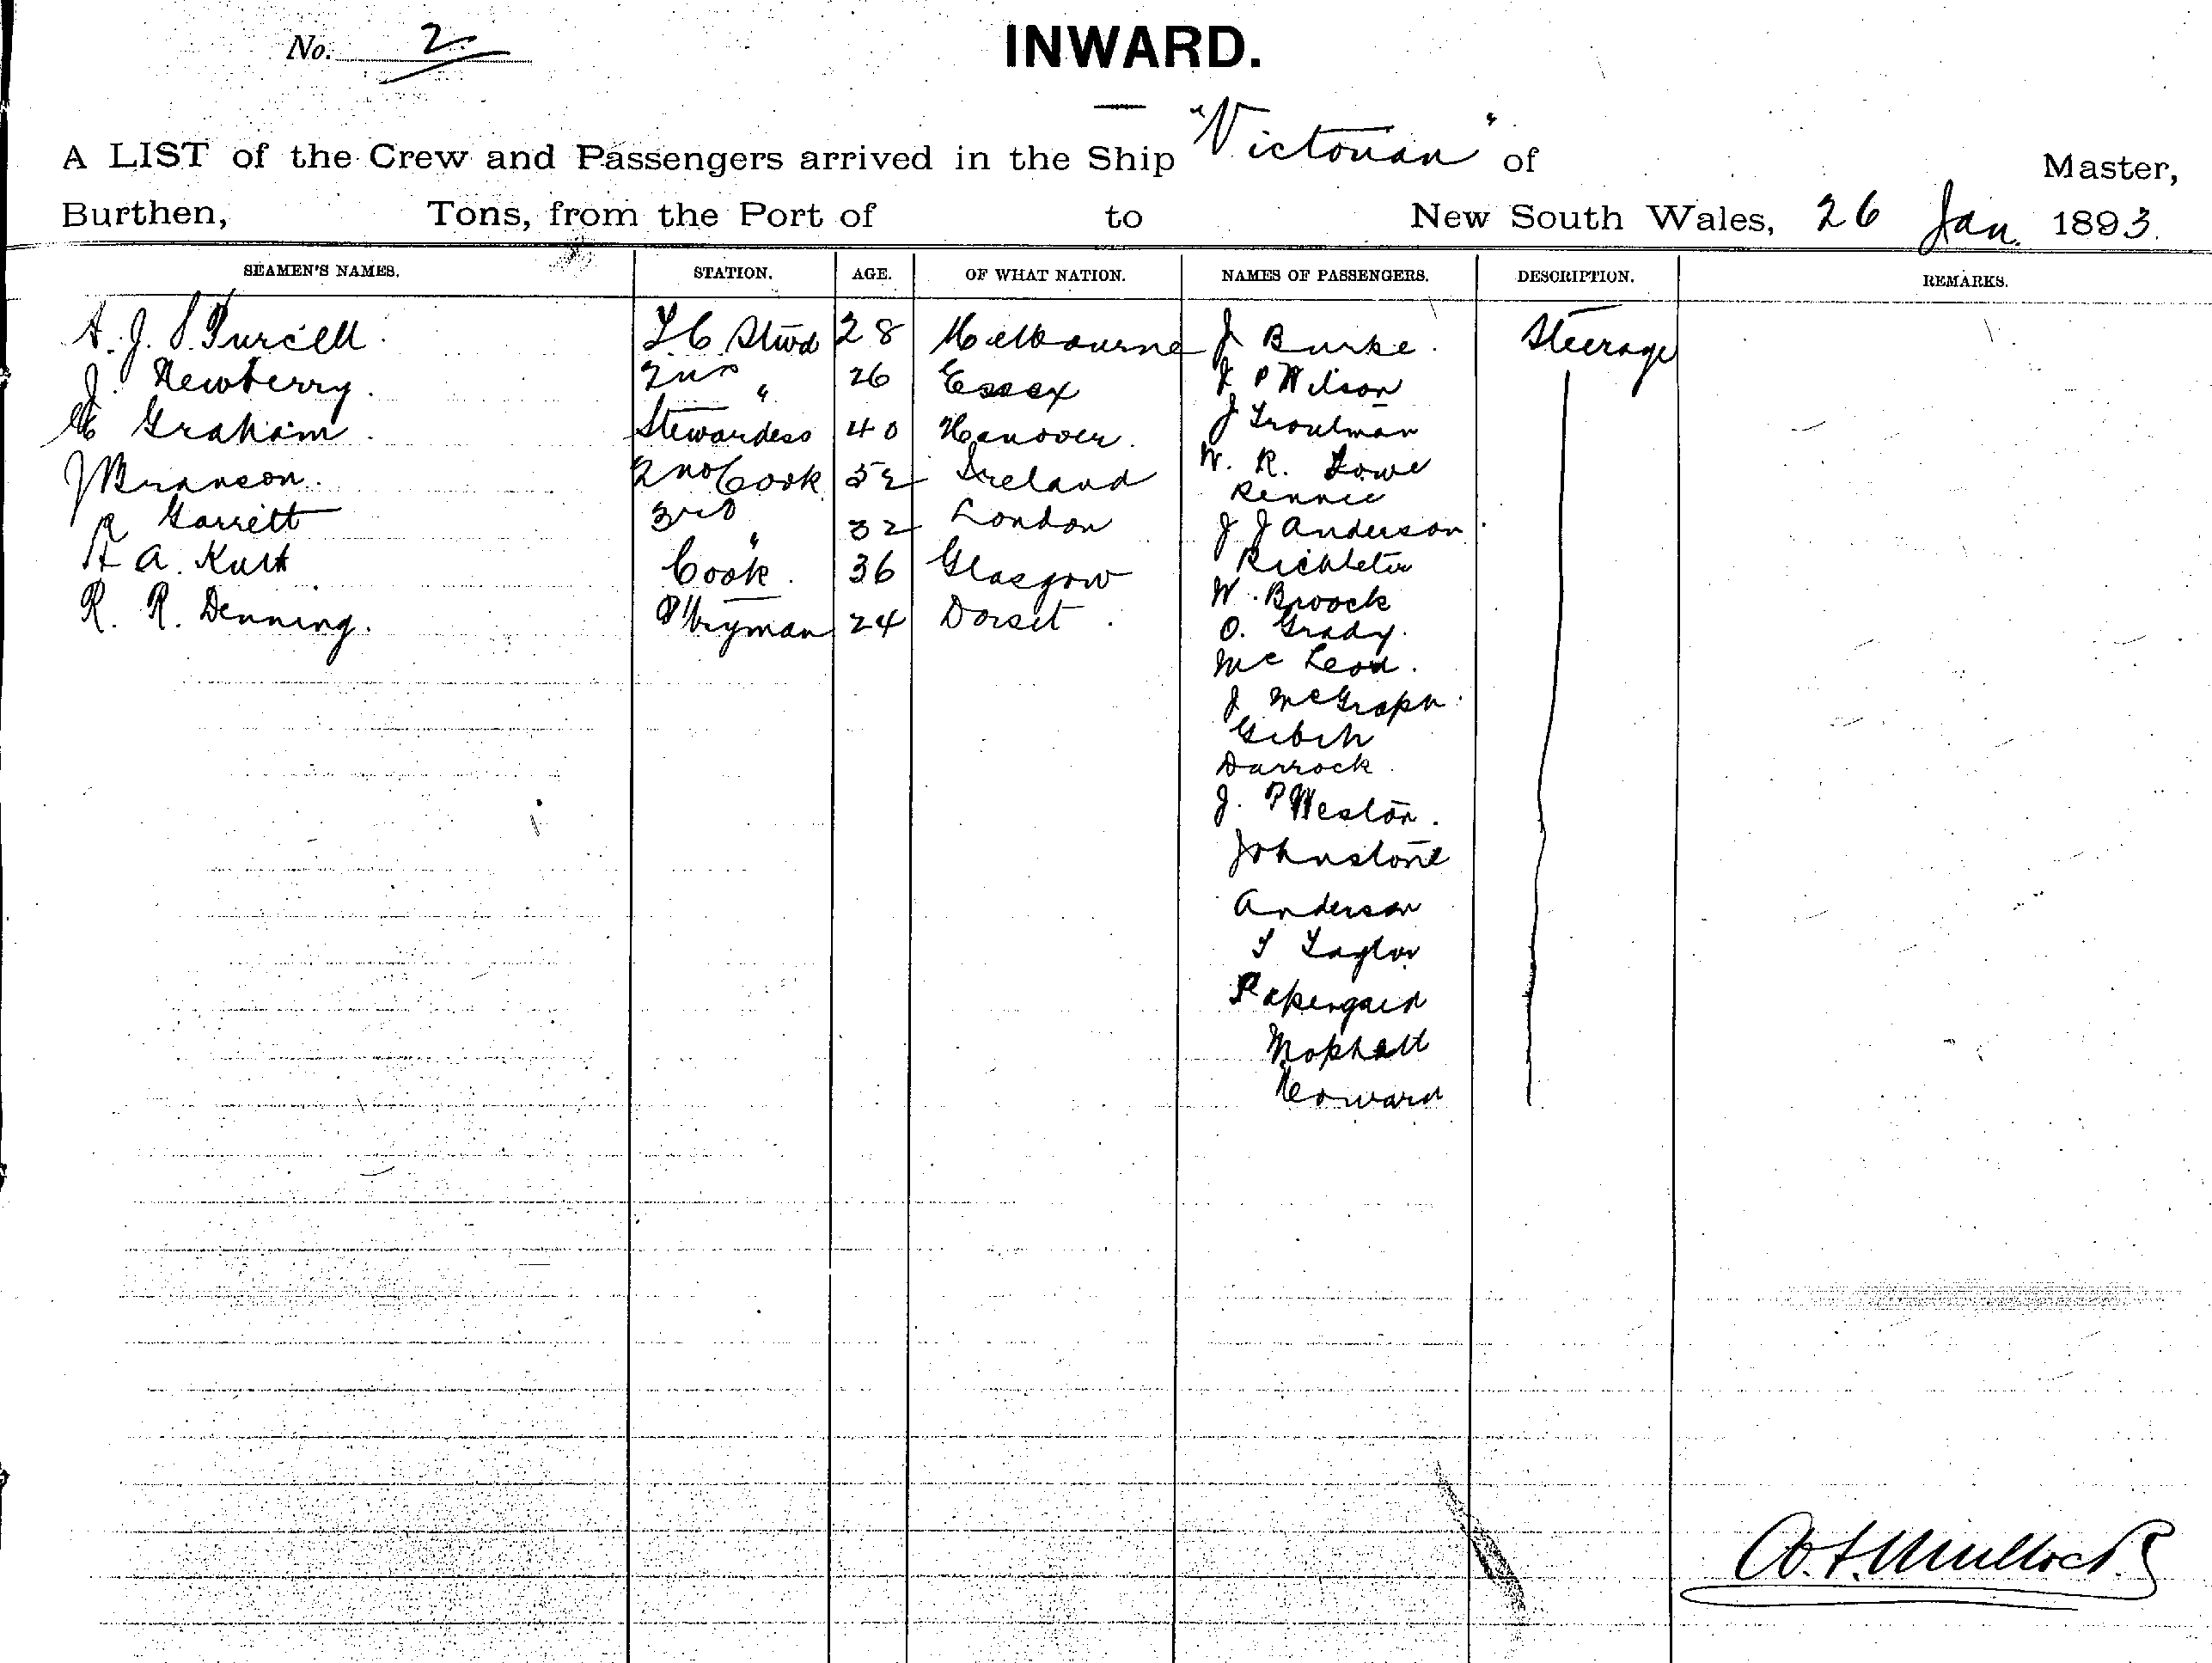 No. 2
INWARD.
A LIST of the Crew and Passengers arrived in the Ship "Victorian" of Master,
Burthen, Tons, from the Port of to New South Wales, 26 Jan. 1893.
SEAMEN'S NAMES. STATION. AGE. OF WHAT NATION. NAMES OF PASSENGERS. DESCRIPTION. REMARKS.
A. J. S. Purcell. F.C. Stwd 28 Melbourne J Burke. Steerage
J. Newberry. 2nd " 26 Essex J P Wilson
M Graham. Stewardess 40 Hanover. J Troulman
J Branson. 2nd Cook 52 Ireland W. R. Lowe
Rennie
R Garrett 3rd " 32 London J J Anderson
H A. Kutt Cook. 36 Glasgow
R. R. Denning. Ptryman 24 Dorset. W. Broock
O. Grady.
Mc Leod.
J McGraph.
Darrock
J. P Weston.
Johnstone
Anderson
T Taylor
Mophatt
Howard